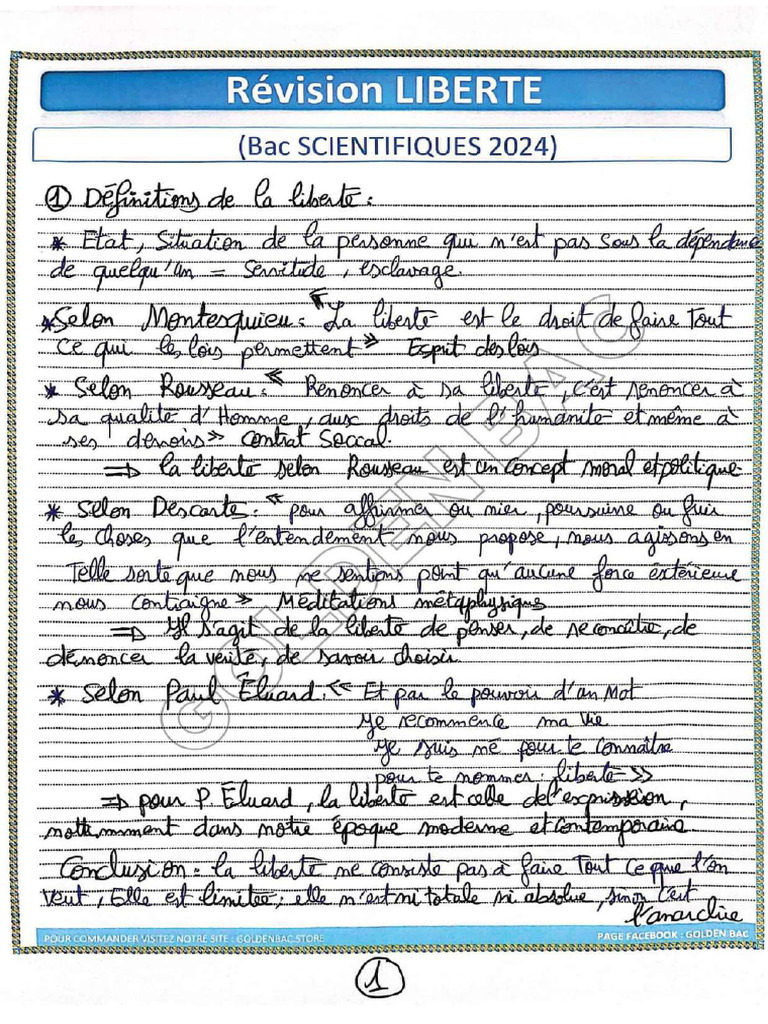 Révision LIBERTE
(Bac SCIENTIFIQUES 2024)
① Définitions de la liberté :
* Etat, Situation de la personne qui n'est pas sous la dépendance
de quelqu'un = Servitude, esclavage.
* Selon Montesquieu : "La liberté est le droit de faire Tout
ce qui les lois permettent" Esprit des lois
* Selon Rousseau : "Renoncer à sa liberté, c'est renoncer à
sa qualité d'Homme, aux droits de l'humanité et même à
ses devoirs" Contrat Soccal.
⇒ la liberté selon Rousseau est un concept moral et politique.
* Selon Descarte : "pour affirmer ou nier, poursuivre ou fuir
les choses que l'entendement nous propose, nous agissons en
Telle sorte que nous ne sentions point qu'aucune force extérieure
nous contraigne" Méditations métaphysiques
⇒ Il s'agit de la liberté de penser, de reconnaître, de
dénoncer la verité, de savoir choisir
* Selon Paul Éluard. "Et par le pouvoir d'un Mot
Je recommence ma vie
Je suis né pour te connaître
pour te nommer : liberté"
⇒ pour P. Éluard, la liberté est celle de l'expression,
dans notre époque moderne et contemporaine
Conclusion : la liberté ne consiste pas à faire Tout ce que l'on
veut, Elle est limitée ; elle n'est ni totale ni absolue, sinon c'est
l'anarchie
POUR COMMANDER VISITEZ NOTRE SITE : GOLDENBAC.STORE
PAGE FACEBOOK : GOLDEN BAC
GOLDEN BAC
①